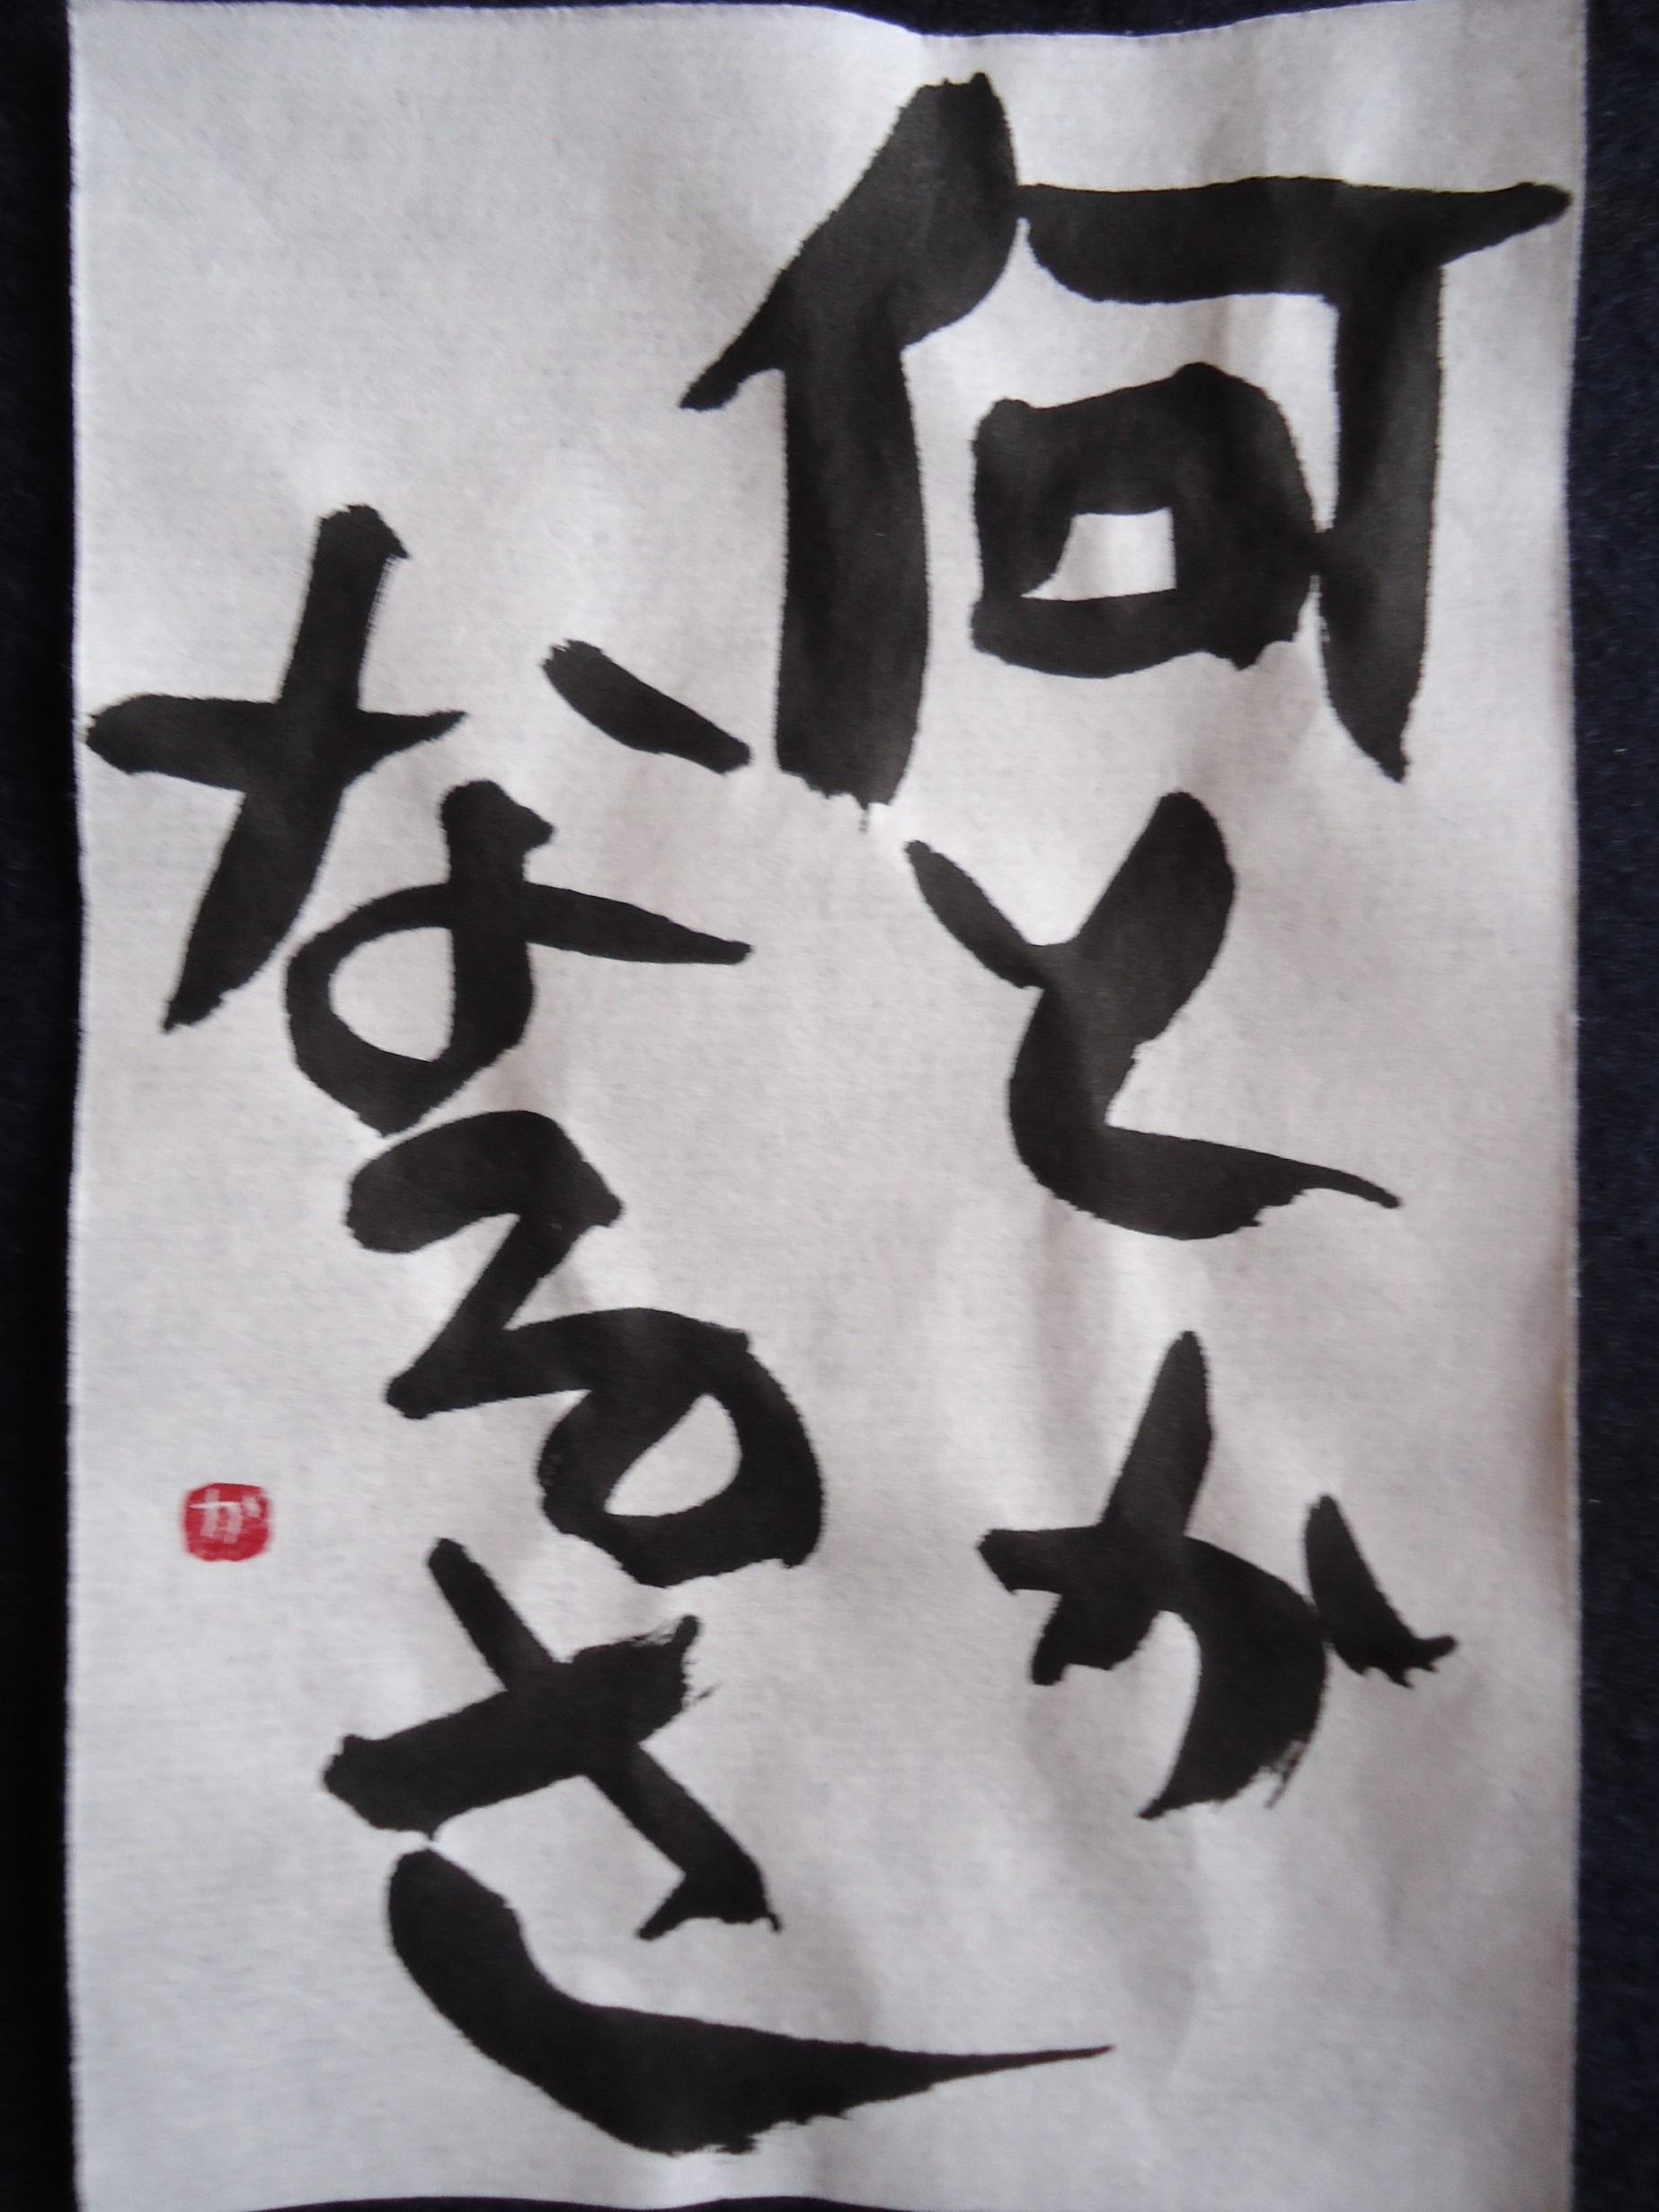 何とか
なるさ
が